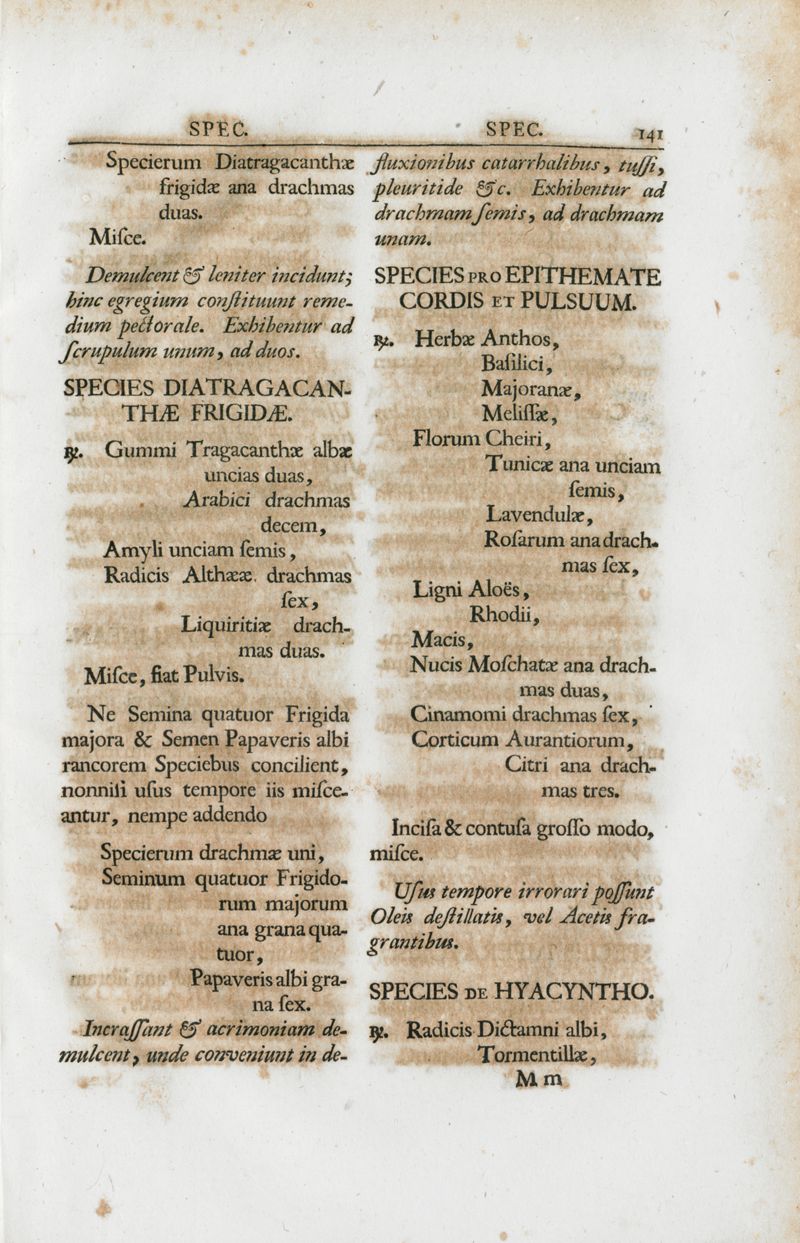 SPEC.
Specierum Diatragacanthæ
frigidæ ana drachmas
duas.
Miſce.
Demulcent & leniter incidunt;
hinc egregium conſtituunt reme-
dium pectorale. Exhibentur ad
ſcrupulum unum, ad duos.
SPECIES DIATRAGACAN-
THÆ FRIGIDÆ.
℞. Gummi Tragacanthæ albæ
uncias duas,
Arabici drachmas
decem,
Amyli unciam ſemis,
Radicis Althææ. drachmas
ſex,
Liquiritiæ drach-
mas duas.
Miſce, fiat Pulvis.
Ne Semina quatuor Frigida
majora & Semen Papaveris albi
rancorem Speciebus concilient,
nonniſi uſus tempore iis miſce-
antur, nempe addendo
Specierum drachmæ uni,
Seminum quatuor Frigido-
rum majorum
ana grana qua-
tuor,
Papaveris albi gra-
na ſex.
Incraſſant & acrimoniam de-
mulcent, unde conveniunt in de-
SPEC. 141
fluxionibus catarrhalibus, tuſſi,
pleuritide &c. Exhibentur ad
drachmam ſemis, ad drachmam
unam.
SPECIES PRO EPITHEMATE
CORDIS ET PULSUUM.
℞. Herbæ Anthos,
Baſilici,
Majoranæ,
Meliſſæ,
Florum Cheiri,
Tunicæ ana unciam
ſemis,
Lavendulæ,
Roſarum ana drach-
mas ſex,
Ligni Aloës,
Rhodii,
Macis,
Nucis Moſchatæ ana drach-
mas duas,
Cinamomi drachmas ſex,
Corticum Aurantiorum,
Citri ana drach-
mas tres.
Inciſa & contuſa groſſo modo,
miſce.
Uſus tempore irrorari poſſunt
Oleis deſtillatis, vel Acetis fra-
grantibus.
SPECIES DE HYACYNTHO.
℞. Radicis Dictamni albi,
Tormentillæ,
M m